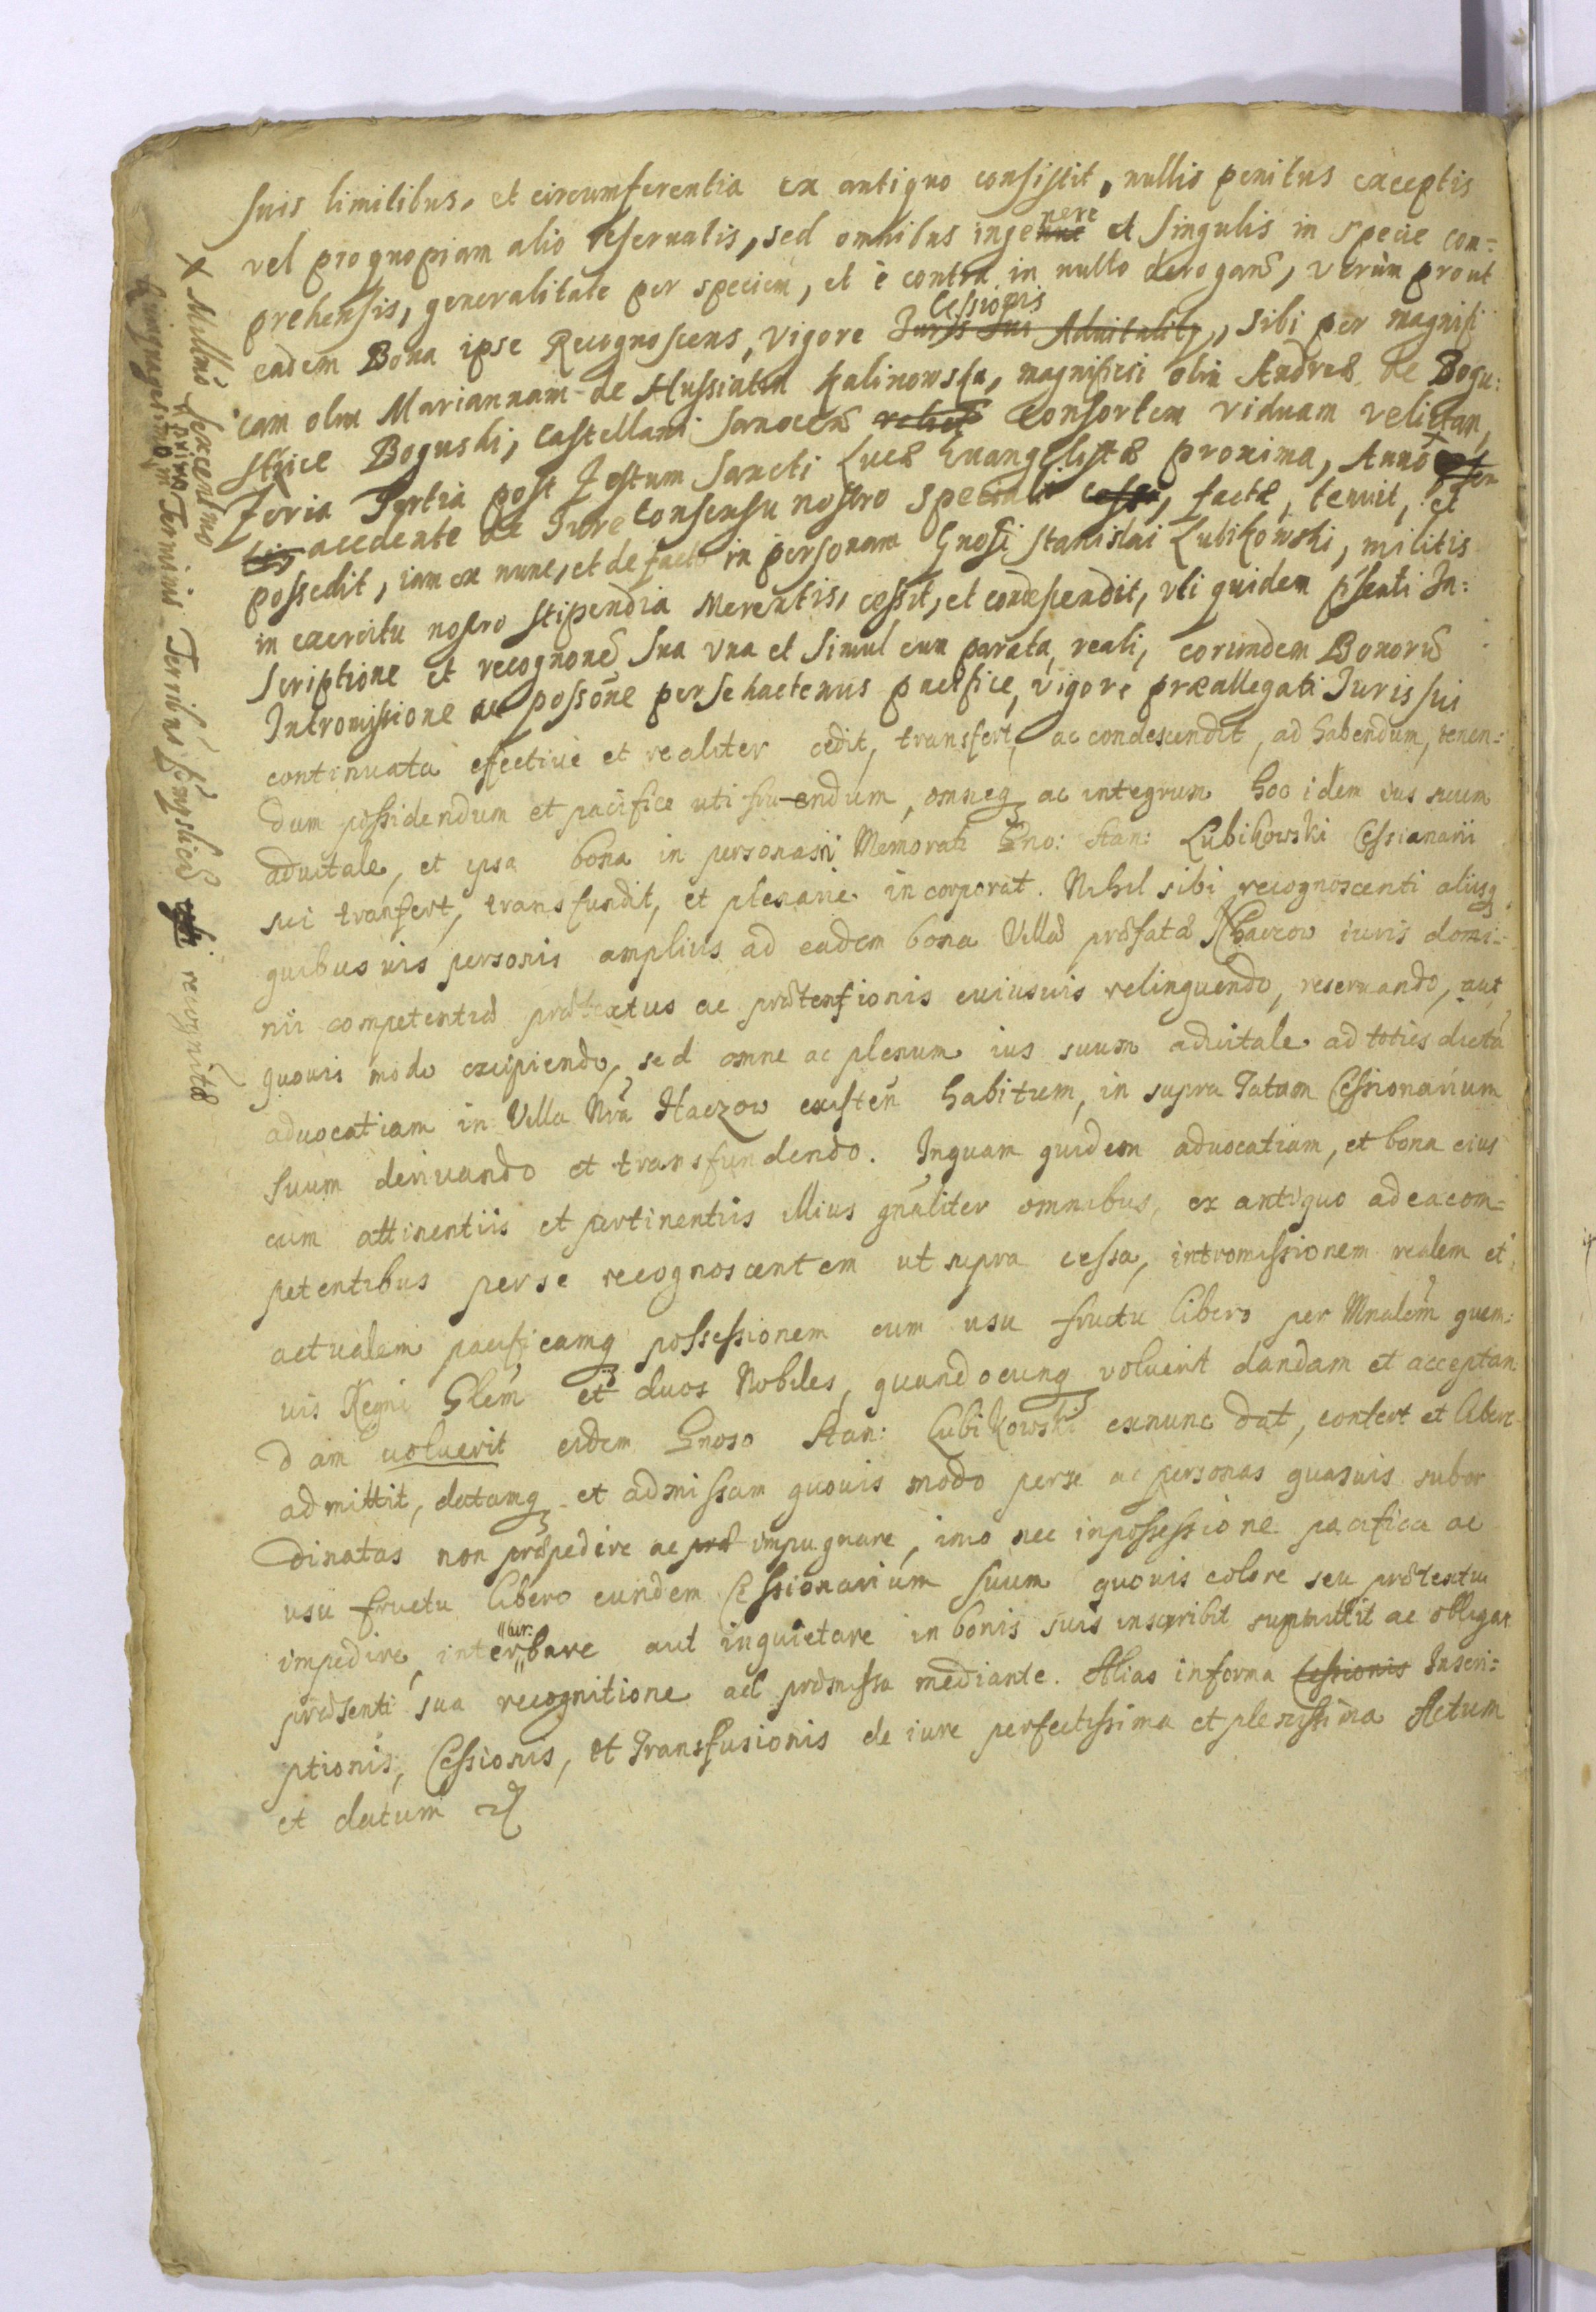 suis limitibus, et circumferentia ex antiquo consistit, nullis penitus exceptis
vel pro quopiam alio reservatis, sed omnibus in genere et singulis in specie con=
prehensis, generalitate per speciem, et è contra in nullo derogans, verùm prout
eadem Bona ipse Recognoscens, vigore Juris sui Advitalitis Cessionis, sibi per magnifi
cam olim Mariannam de Hussiatin Kalinowska, magnifici olim Andreæ de Bogu:
stiice Bogushi, Castellani Sanocen relict consortem viduam relictam,
Feria Tertia post Festum Sancti Lucæ Evangelistæ proxima, Anno X
accedente de Iure Consensu nostro speciali cessa, factæ, tenuit, et
possedit, iam ex nunc, et de facto in personam Gnosi Stanislai Lubikowski, militis
in exercitu nostro stipendia Merentis, cessit, et condescendit, uti quidem pñsenti In:
scriptione et recognone sua una et simul cum parata, reali, eorundem Bonorũ
Intromissione ac possone per se hactenus pacifice, vigore præallegati Juris sui
continuata efective et realiter cedit, transfert, ac condescendit, ad habendum, tenen=
dum possidendum et pacifice uti fru-endum, omneq ac integrum hoc idem ius suum
advitale, et ipsa bona in personam Memorati Gno: Stan: Lubikowski Cessionarii
sui tranfert, transfundit, et plenarie incorporat. Nihil sibi recognoscenti aliisq
quibusvis personis amplius ad eadem bona Villæ præfatæ Haczow iuris domi=
nii competentiæ prætextus ac prætensionis cuiusvis relinquendo, reservando, aut
quovis modo excipiendo, sed omne ac plenum ius suum advitale ad toties dictã
advocatiam in Villa Nrã Haczow existeñ habitum, in supra Tatum Cessionarium
suum derivando et transfundendo. Inquam quidem advocatiam, et bona eius
cum attinentiis et pertinentiis illius gñaliter omnibus, ex antiquo ad ea com=
petentibus per se recognoscentem ut supra cessa, intromissionem realem et
actualem pacificamq possessionem cum usu fructu libero per Mnalem quem:
vis Regni Glem et duos Nobiles, quandocunq voluerit dandam et acceptan
dam voluerit eidem Gnoso Stan: Lubikowski exnunc dat, confert et libere
admittit, datamq et admissam quovis modo perse ac personas quasvis subor
dinatas non præpedire ac præ impugnare, imo nec inpossessione pacifica ac
usu fructu libero eundem Cessionarium suum quovis colore seu prætextu
impedire, interbare tur: aut inquietare in bonis suis inscribit summittit ac obligat
præsenti sua recognitione ad præmissa mediante. Alias informa Cessionis Inscri=
ptionis, Cessionis, et Transfusionis de iure perfectissima et plenissima Actum
et datum
X Millmo sexcentmo
quinquagesimo
prima Terminis Terribus recognitæ